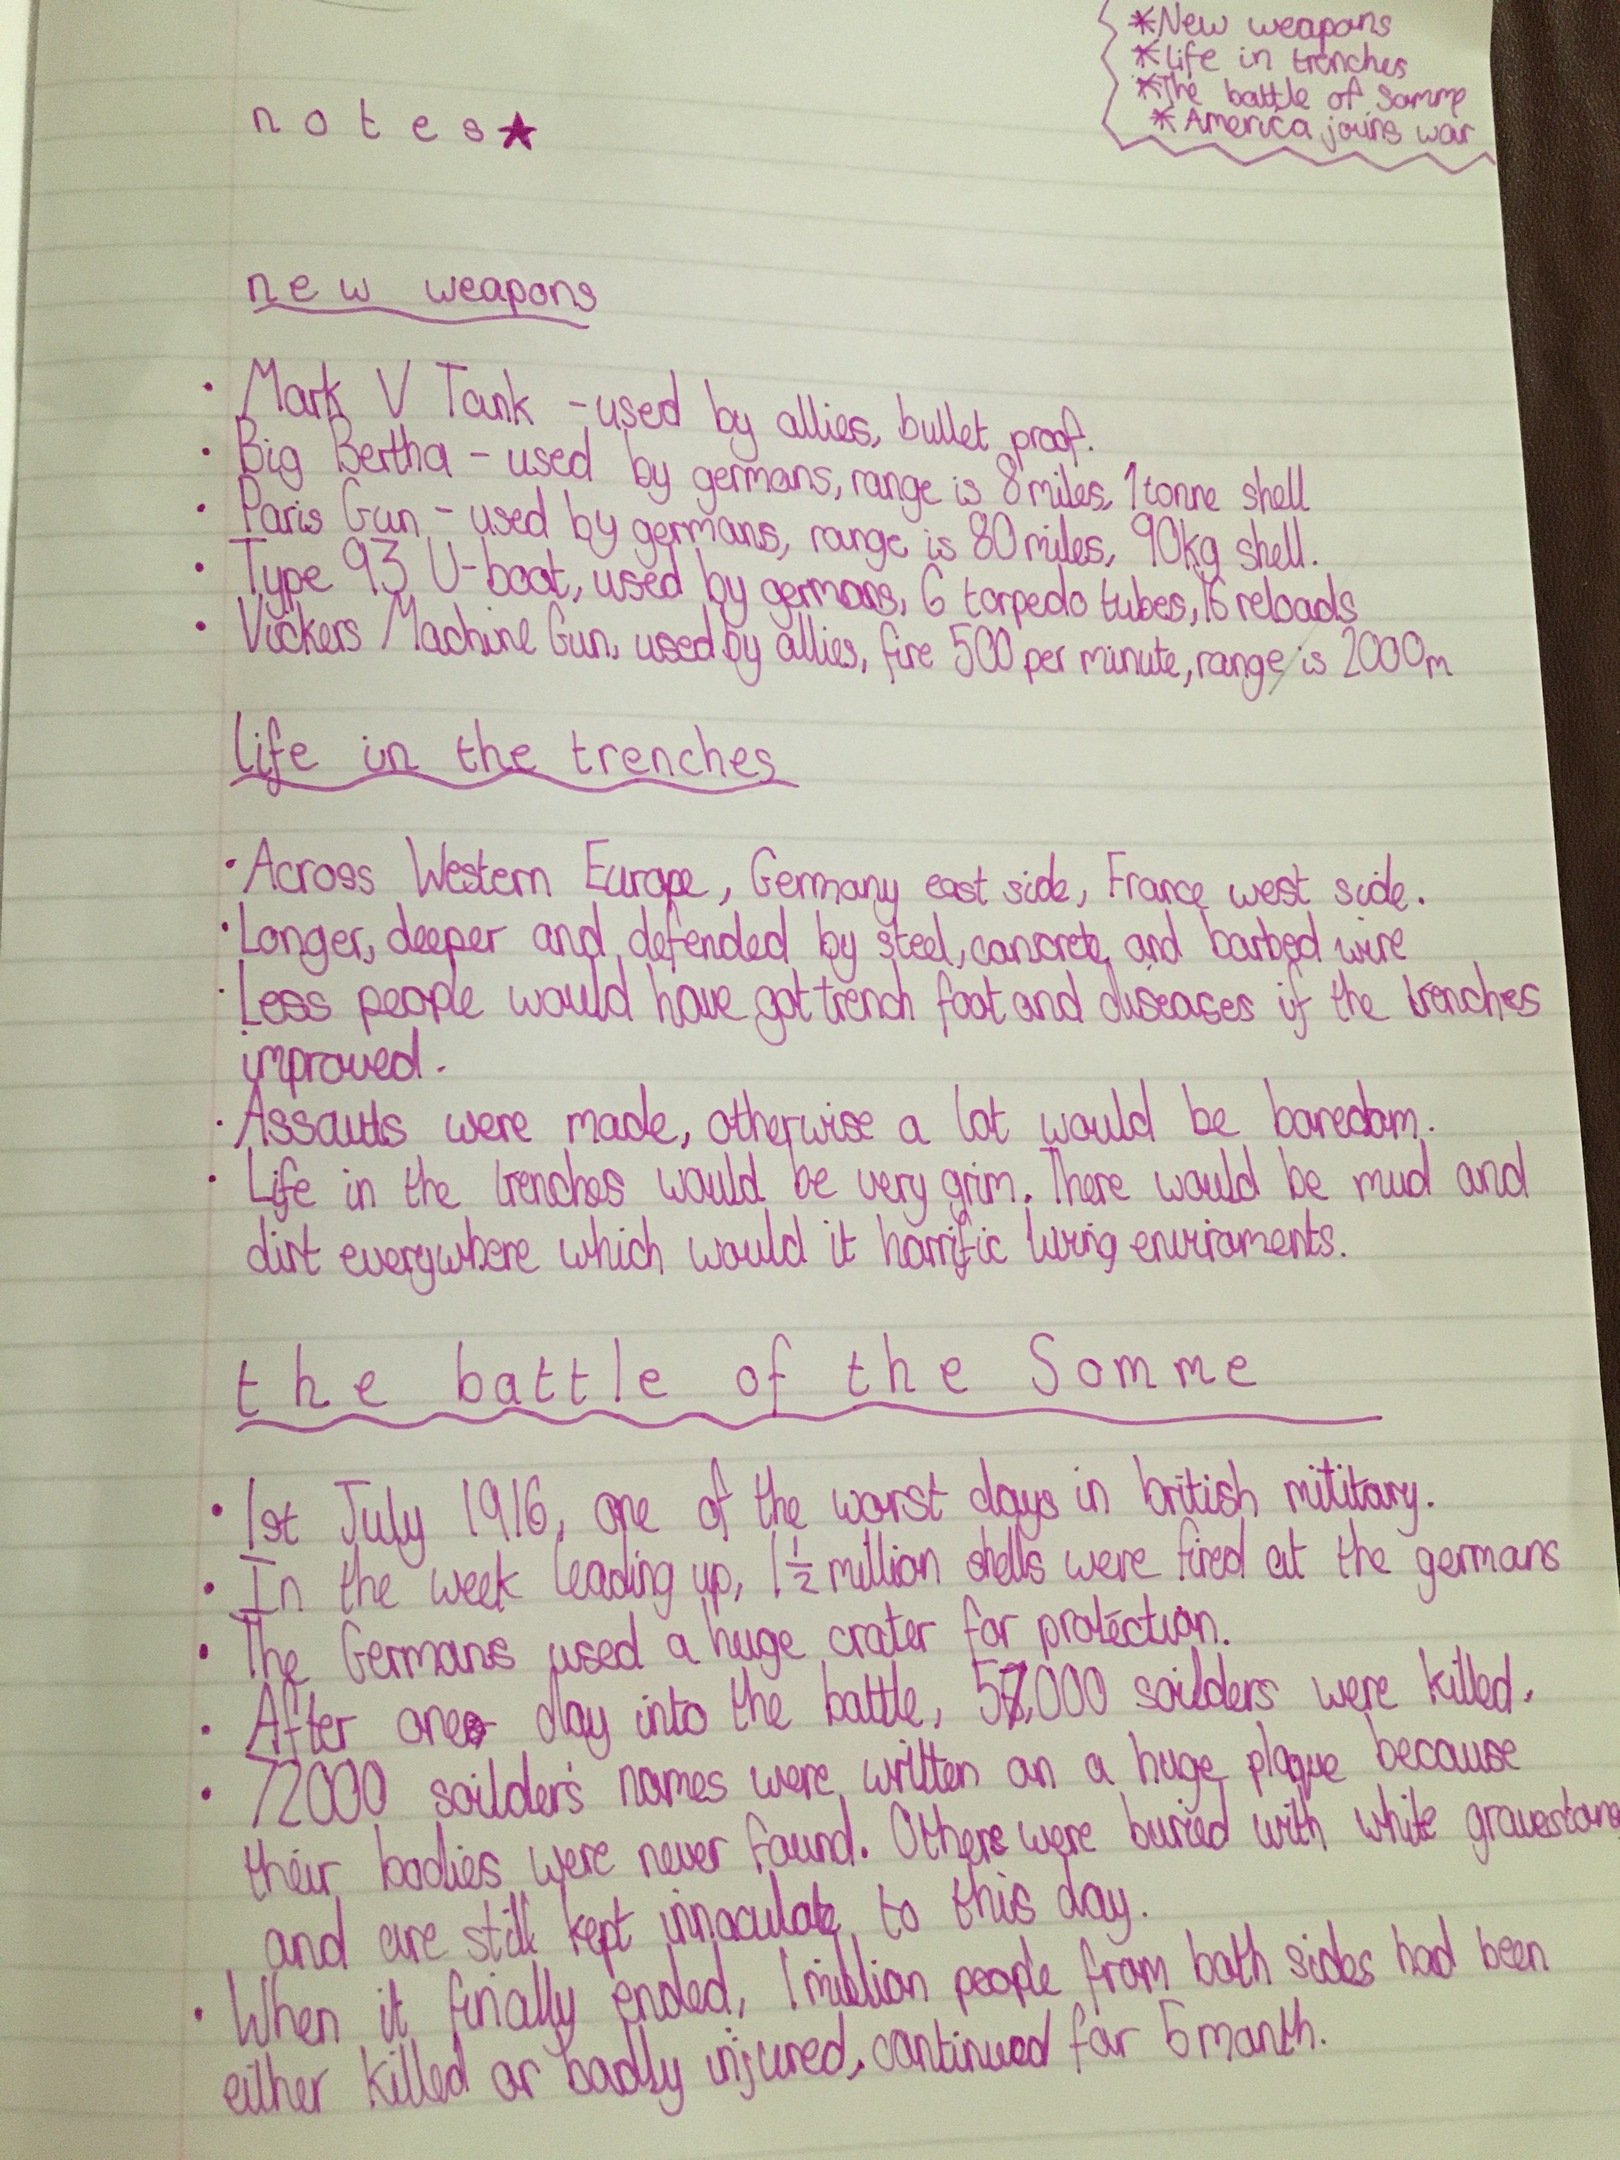 *New weapons
*Life in trenches
*The battle of Somme
*America joins war
notes★
new weapons
• Mark V Tank - used by allies, bullet proof.
• Big Bertha - used by germans, range is 8 miles, 1 tonne shell
• Paris Gun - used by germans, range is 80 miles, 90kg shell.
• Type 93 U-boat, used by germans, 6 torpedo tubes, 16 reloads
• Vickers Machine Gun, used by allies, fire 500 per minute, range is 2000m
life in the trenches
• Across Western Europe, Germany east side, France west side.
• Longer, deeper and defended by steel, concrete and barbed wire
• Less people would have got trench foot and diseases if the trenches
improved.
• Assaults were made, otherwise a lot would be boredom.
• Life in the trenches would be very grim. There would be mud and
dirt everywhere which would it horrific living enviroments.
the battle of the Somme
• 1st July 1916, one of the worst days in british mititary.
• In the week leading up, 1½ million shells were fired at the germans
• The Germans used a huge crater for protection.
• After one day into the battle, 57,000 soilders were killed.
• 72000 soilder's names were written on a huge plaque because
their bodies were never found. Others were buried with white gravestone
and are still kept innaculate to this day.
• When it finally ended, 1 million people from both sides had been
either killed or badly injured, continued for 5 month.